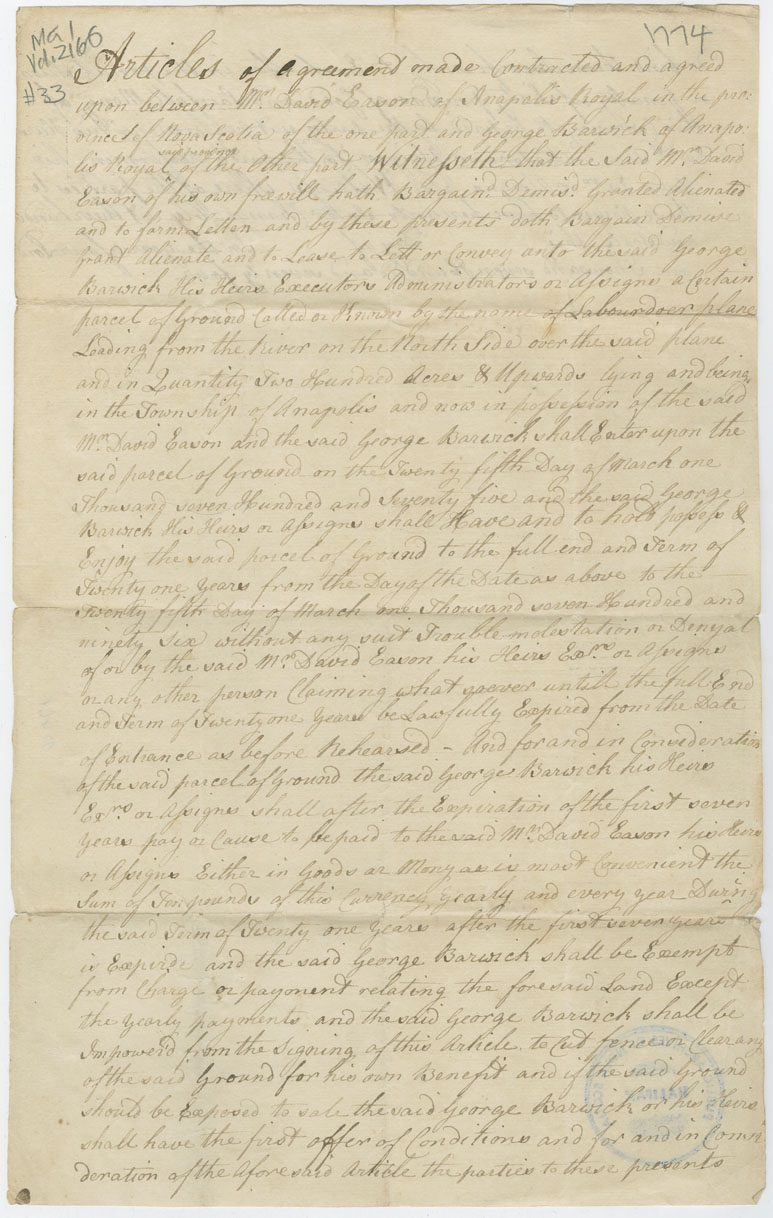 MG 1
Vol. 2166
#33
1774
Articles of agreement made Contracted and agreed
upon between Mr. David Eason of Anapolis Royal in the pro-
vince of Nova Scotia of the one part and George Barwick of Anapo-
lis Royal said province of the Other part Witnesseth that the Said Mr. David
Eason of his own freewill hath Bargaind. Demisd. Granted Alienated
and to farm Letten and by these presents doth Bargain Demise
grant Alienate and to Lease to Lett or Convey onto the said George
Barwick His Heirs Executors Administrators or Assigns a Certain
parcel of Ground Called or Known by the name of Labourdoer plane
Leading from the River on the North Side over the said plane
and in Quantity Two Hundred Acres & Upwards lying and being
in the Township of Anapolis and now in possession of the said
Mr. David Eason and the said George Barwick shall Enter upon the
said parcel of Ground on the Twenty fifth Day of March one
Thousand seven Hundred and Seventy five and the said George
Barwick His Heirs or Assigns shall Have and to hold possess &
Enjoy the said parcel of Ground to the full end and Term of
Twenty one Years from the Day of the Date as above to the
Twenty fifth Day of March one Thousand seven Hundred and
ninety Six without any suit Trouble molestation or Denyal
of or by the said Mr. David Eason his Heirs Exrs. or Assigns
or any other person Claiming what soever untill the full End
and Term of Twenty one Years be Lawfully Expired from the Date
of Entrance as before Rehearsed - And for and in Consideration
of the said parcel of Ground the said George Barwick his Heirs
Exrs. or Assigns shall after the Expiration of the first seven
years pay or Cause to be paid to the said Mr. David Eason his Heirs
or Assigns Either in Goods or Mony as is most Convenient the
Sum of Ten pounds of this Currency Yearly and every year During
the said Term of Twenty one Years after the first seven Years
is Expirde and the said George Barwick shall be Exempt
from Charge or payment relating the foresaid Land Except
the yearly payments and the said George Barwick shall be
Impowerd from the Signing of this Article to Cut fence or Clear any
of the said Ground for his own Benefit and if the said Ground
should be Exposed to sale the said George Barwick or his Heirs
shall have the first offer of Conditions and for and in Consi-
deration of the Afore said Article the parties to these presents